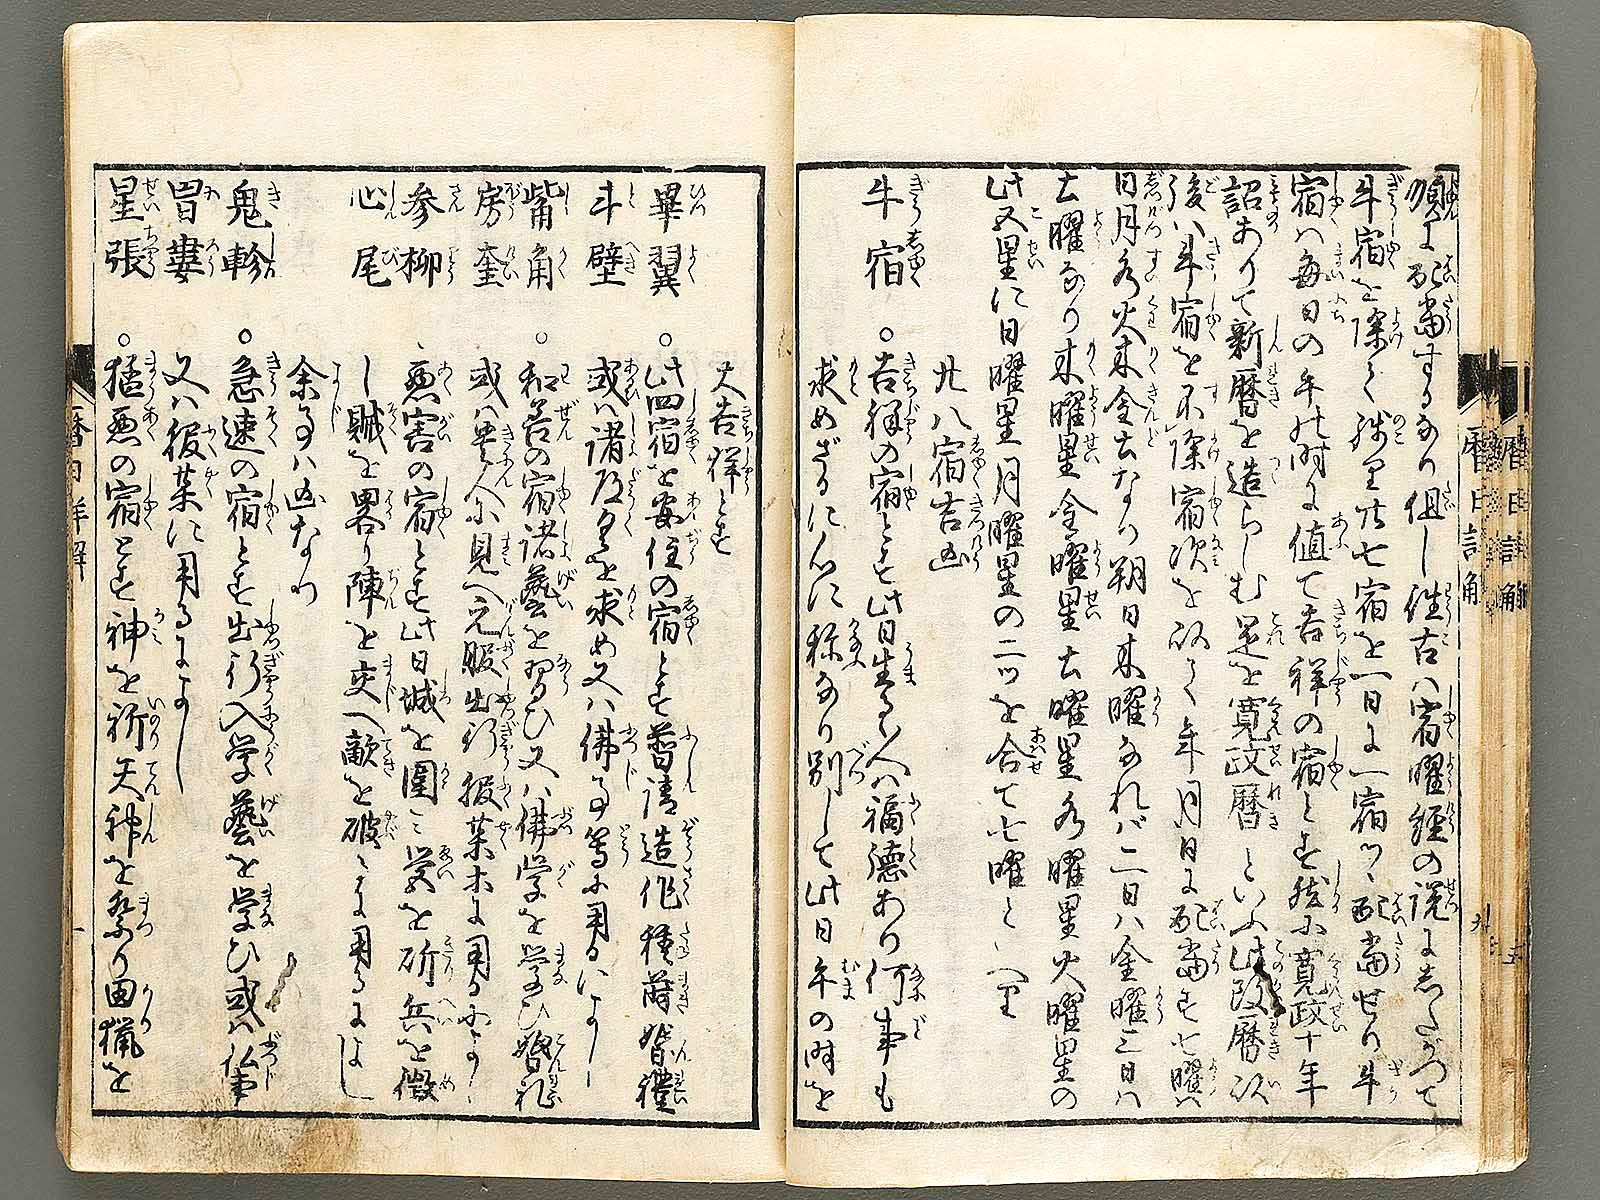 順に配当するなり但し往古ハ宿曜経の説にしたがつて
牛宿を除て残里廿七宿を一日に一宿ツヽ配当せり牛
宿ハ毎日の午の時に値て吉祥の宿とす然に寛政十年
詔ありて新暦を造らしむ是を寛政暦といふ此改暦以
後ハ牛宿を不除宿次を以て年月日に配当す七曜ハ
日月水火木金土なり朔日木曜なれバ二日ハ金曜三日ハ
土曜なり木曜星金曜星土曜星水曜星火曜星の
此五星に日曜星月曜星の二ツを合て七曜といへり
廿八宿吉凶
牛宿 ○吉祥の宿とす此日生るゝ人ハ福徳あり何事も
求めざるに心に称なり別して此日午の時を
大吉祥とす
畢翼 ○此四宿を安住の宿とす普請造作種蒔婚禮
斗壁 或ハ諸道具を求め又ハ佛事等に用るによし
觜角 ○和善の宿諸藝を習ひ又ハ佛学を学ひ婚礼
房奎 或ハ貴人に見へ元服出行服薬等に用るによし
参柳 ○悪害の宿とす此日城を圍ミ営を斫兵を徴
心尾 し賊を畧り陣を交へ敵を破るに用るによし
余事ハ凶なり
鬼軫 ○急速の宿とす出行入学藝を学ひ或ハ仏事
胃婁 又ハ服薬に用るによし
星張 ○猛悪の宿とす神を祈天神を祭り田猟を
暦日詳解
九